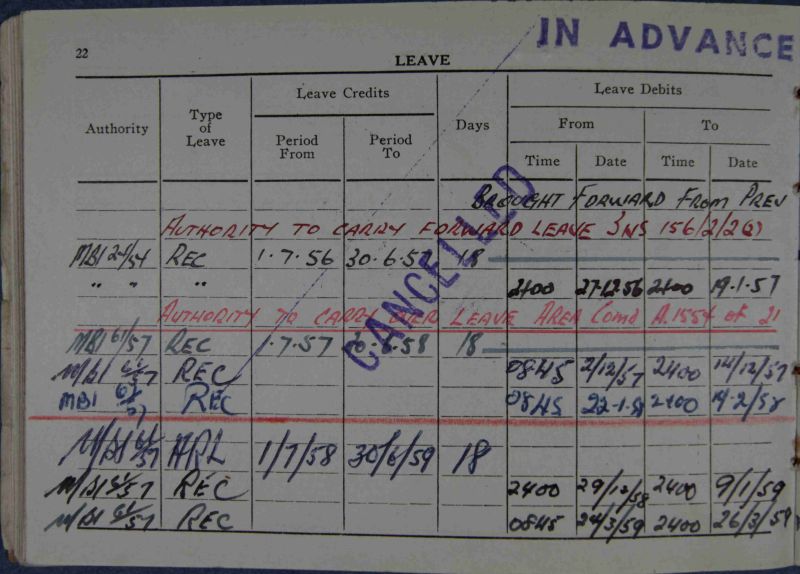 IN ADVANCE
22
LEAVE
Authority Type of Leave Leave Credits Days Leave Debits
Period From Period To From To
Time Date Time Date
BROUGHT FORWARD FROM PREV
AUTHORITY TO CARRY FORWARD LEAVE 3NS 156/2/2(2)
MBI 24/54 REC 1.7.56 30.6.57 18
" " " 2400 27.12.56 2400 19.1.57
AUTHORITY TO CARRY OVER LEAVE AREA Comd A.1554 of 21
MBI 61/57 REC 1.7.57 30.6.58 18
MBI 61/57 REC 0845 2/12/57 2400 14/12/57
MBI 61/57 REC 0845 22.1.58 2400 14.2/58
MBI 61/57 ARL 1/7/58 30/6/59 18
MBI 61/57 REC 2400 29/12/58 2400 9/1/59
MBI 61/57 REC 0845 24/3/59 2400 26/3/59
CANCELLED